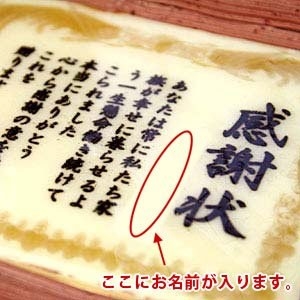 感謝状
あなたは常に私たち家
族が幸せに暮らせるよ
う一生懸命働き続けて
こられました
本当にありがとう
心から感謝の意を
これを
贈りま
ここにお名前が入ります。